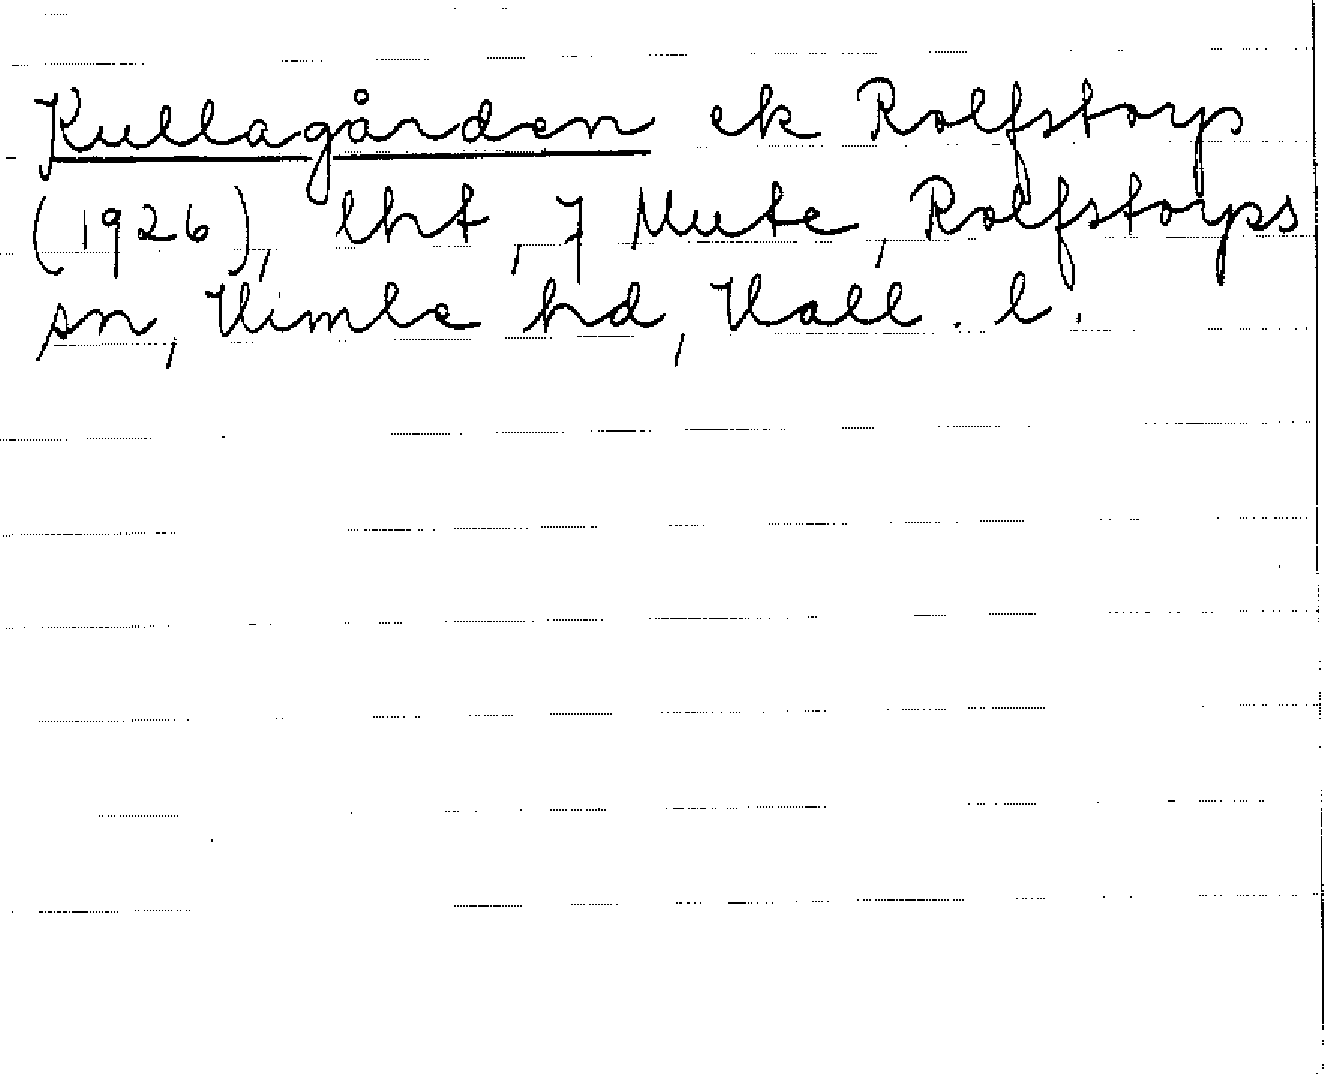 Kullagården ek Rolfstorp
(1926), lht, 7 Mute, Rolfstorps
sn, Himle hd, Hall. l.